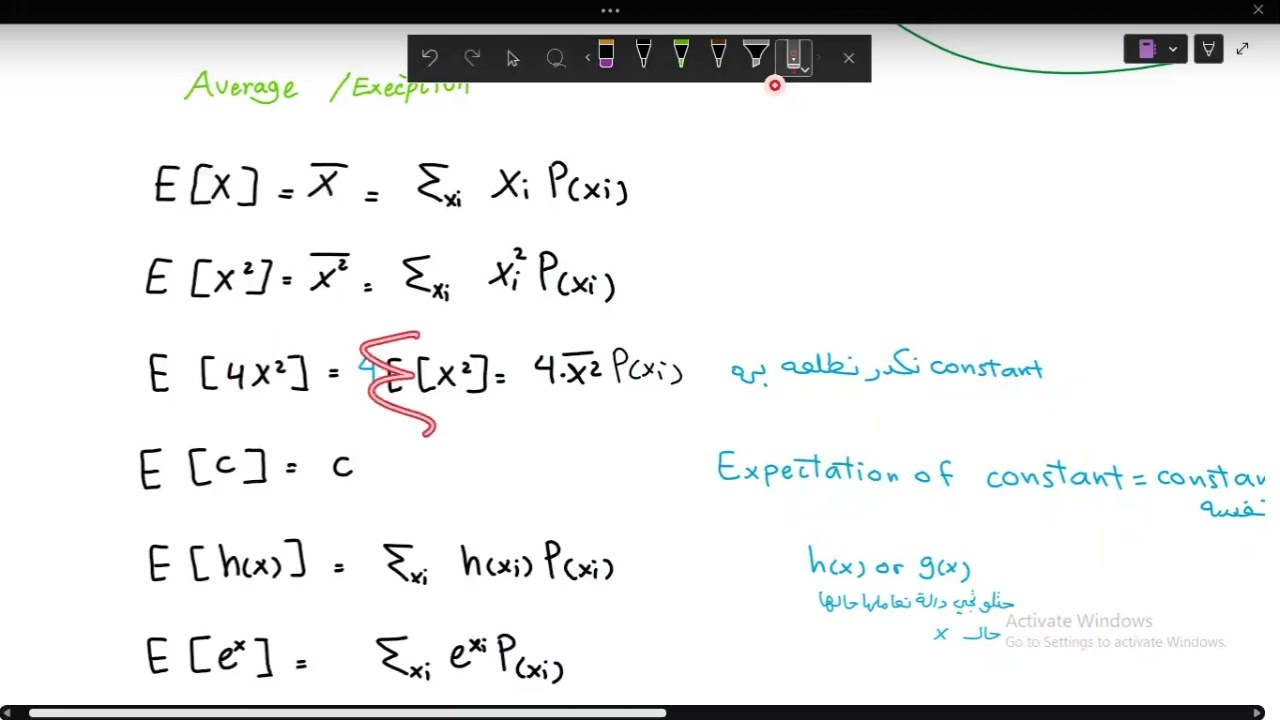 Average / Execption
E[X] = X̅ = Σxi Xi P(xi)
E[X²] = X̅² = Σxi Xi² P(xi)
E[4X²] = 4E[X²] = 4.X̅² P(xi) constant نكدر نطلعه بره
E[c] = c Expectation of constant = constan نفسه
E[h(x)] = Σxi h(xi) P(xi) h(x) or g(x)
دالة نعاملها حالها
حال x
E[eˣ] = Σxi e^xi P(xi)
Activate Windows
Go to Settings to activate Windows.